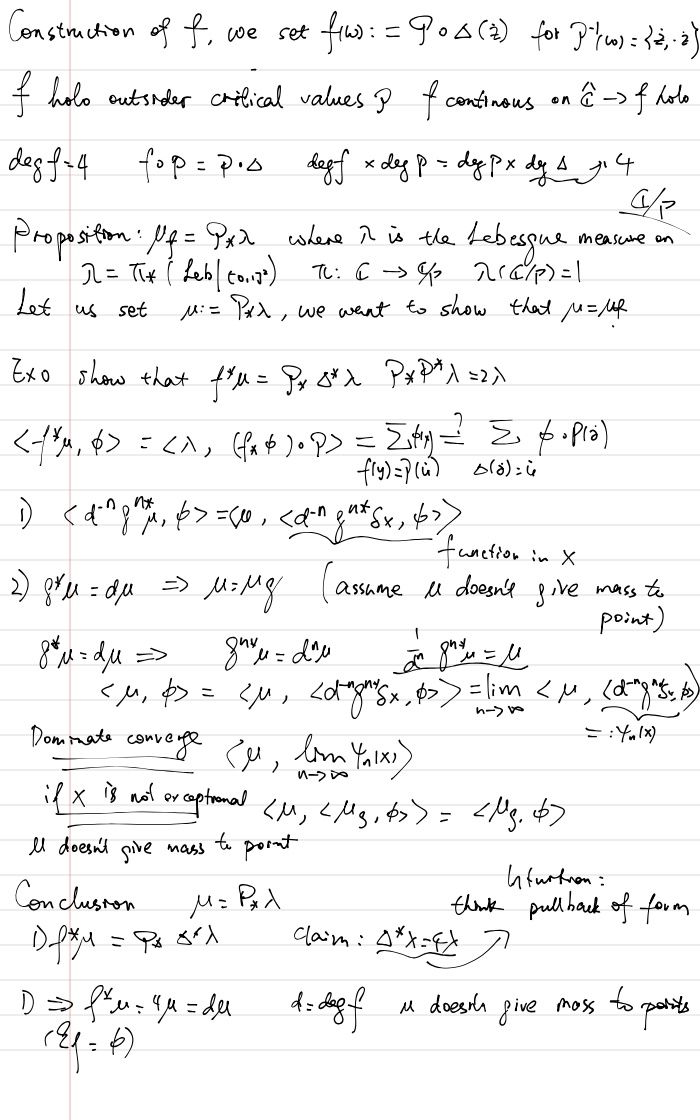 Construction of f, we set f(w) := P∘Δ(ż) for P⁻¹(w) = {ż, -ż}
f holo outsider critical values P f continous on Ĉ → f holo
deg f = 4 f∘P = P∘Δ deg f × deg P = deg P × deg Δ → 4
Proposition: μ_f = P_*λ where λ is the Lebesgue measure on ℂ/P
λ = π_*(Leb|[0,1]²) π: ℂ → ℂ/P λ(ℂ/P) = 1
Let us set μ := P_*λ, we want to show that μ = μ_f
Exo show that f^*μ = P_* Δ^*λ P_*P^*λ = 2λ
<f^*μ, φ> = <λ, (f_*φ)∘P> = Σ φ(y) =? Σ φ∘P(ż)
f(y)=P(u̇) Δ(ż)=u̇
1) <d⁻ⁿ g^{n*}μ, φ> = <μ, <d⁻ⁿ g^{n*}δ_x, φ>>
function in x
2) g^*μ = dμ ⇒ μ = μ_g (assume μ doesn't give mass to
point)
g^*μ = dμ ⇒ g^{n*}μ = dⁿμ 1/dⁿ g^{n*}μ = μ
<μ, φ> = <μ, <d⁻ⁿg^{n*}δ_x, φ>> = lim n→∞ <μ, <d⁻ⁿg^{n*}δ_x, φ>>
=: ψ_n(x)
Dominate converge <μ, lim n→∞ ψ_n(x)>
if x is not exceptional <μ, <μ_g, φ>> = <μ_g, φ>
μ doesn't give mass to point
Intuition:
Conclusion μ = P_*λ think pullback of form
1) f^*μ = P_* Δ^*λ Claim: Δ^*λ = 4λ
1) ⇒ f^*μ = 4μ = dμ d = deg f μ doesn't give mass to points
(ℰ_f = ϕ)